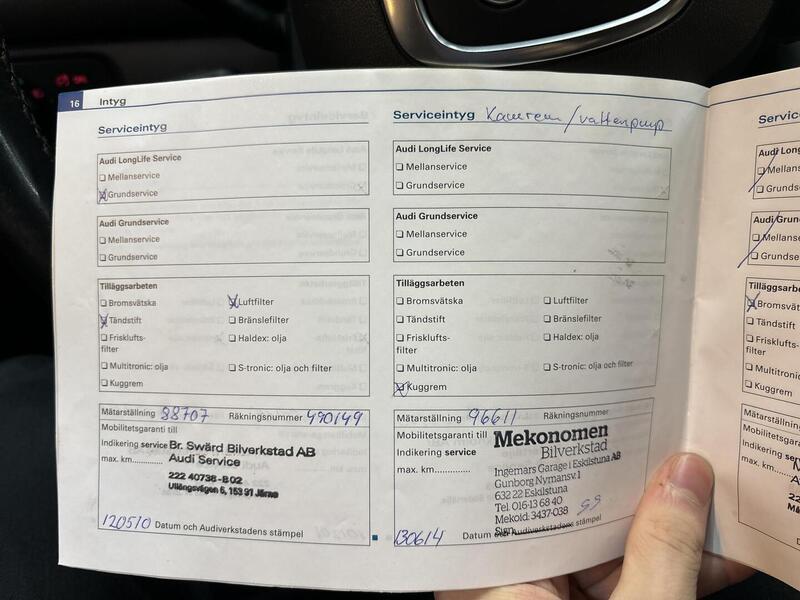 16 Intyg
Serviceintyg
Audi LongLife Service
Mellanservice
Grundservice
Audi Grundservice
Mellanservice
Grundservice
Tilläggsarbeten
Bromsvätska Luftfilter
Tändstift Bränslefilter
Frisklufts- Haldex: olja
filter
Multitronic: olja S-tronic: olja och filter
Kuggrem
Mätarställning 88707 Räkningsnummer 490149
Mobilitetsgaranti till
Indikering service Br. Swärd Bilverkstad AB
max. km............. Audi Service
222 40738-B 02
Ullängsvägen 6, 153 91 Järna
120510 Datum och Audiverkstadens stämpel
Serviceintyg Kamrem/vattenpump
Audi LongLife Service
Mellanservice
Grundservice
Audi Grundservice
Mellanservice
Grundservice
Tilläggsarbeten
Bromsvätska Luftfilter
Tändstift Bränslefilter
Frisklufts- Haldex: olja
filter
Multitronic: olja S-tronic: olja och filter
Kuggrem
Mätarställning 96611 Räkningsnummer
Mobilitetsgaranti till Mekonomen
Bilverkstad
Indikering service Ingemars Garage i Eskilstuna AB
max. km............. Gunborg Nymansv. 1
632 22 Eskilstuna
Tel. 016-13 68 40
Mekoid: 3437-038
Sign.
130614 Datum och Audiverkstadens stämpel
Servic
Audi Lon
Mellan
Grundse
Audi Grun
Mellans
Grundse
Tilläggsarb
Bromsvä
Tändstift
Friskluft
filter
Multitronic
Kuggrem
Mätarställnin
Mobilitetsgara
Indikering serv
max. km